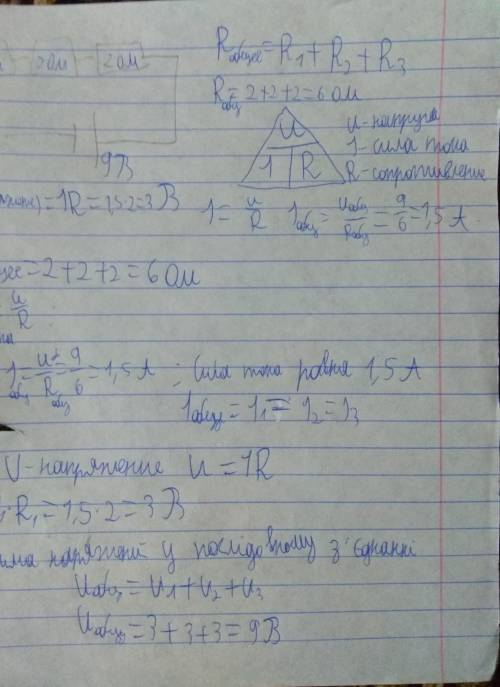 2 Ом 2 Ом
9В
Rобщее = R1 + R2 + R3
Rобщ = 2+2+2=6 Ом
U
I R
U - напруга
I - сила тока
R - сопротивление
) = IR = 1,5·2=3 В
I = U/R Iобщ = Uобщ/Rобщ = 9/6 = 1,5 А
щее = 2 + 2 + 2 = 6 Ом
U/R
Iобщ = U/Rобщ = 9/6 = 1,5 А ; Сила тока ровня 1,5 А
Iобщ = I1 = I2 = I3
U - напряжение U = IR
· R1 = 1,5 · 2 = 3 В
напряжений у послідовному з'єднанні
Uобщ = U1 + U2 + U3
Uобщ = 3 + 3 + 3 = 9 В